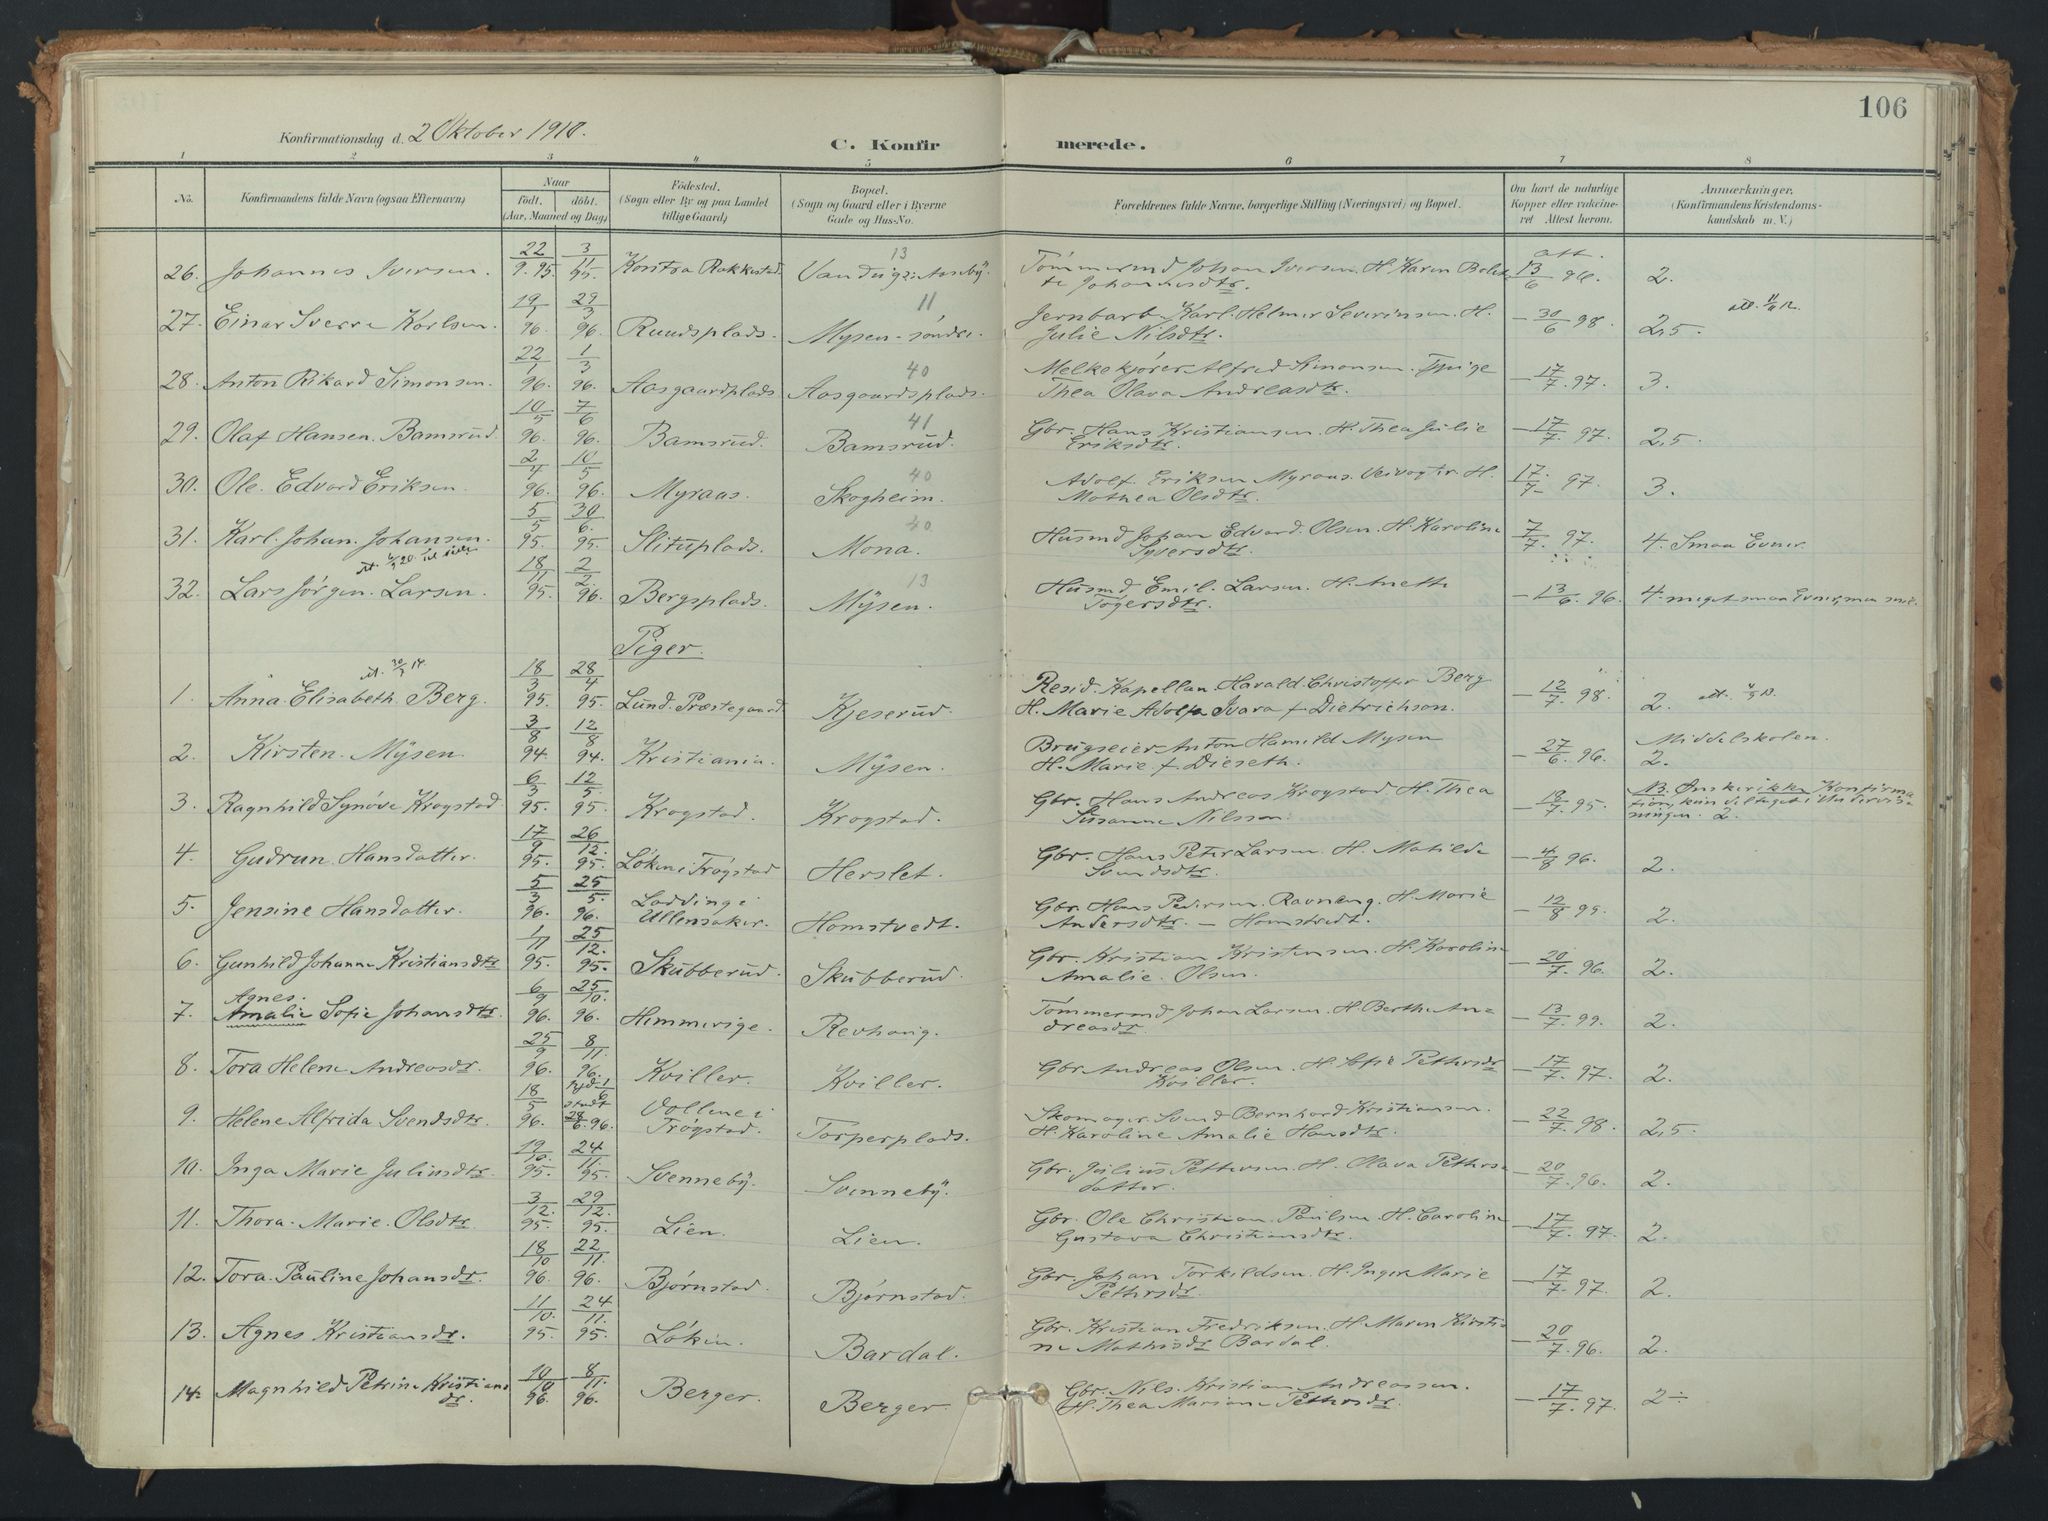 106
Konfirmationsdag d. 2 Oktober 1910.
C. Konfirmerede.
1 2 3 4 5 6 7 8
No. Konfirmandens fulde Navn (ogsaa Efternavn) Naar født. døbt. (Aar, Maaned og Dag) Fødested. (Sogn eller By og paa Landet tillige Gaard) Bopæl. (Sogn og Gaard eller i Byerne Gade og Hus-No. Forældrenes fulde Navne, borgerlige Stilling (Næringsvei) og Bopæl. Om havt de naturlige Kopper eller vakcineret Attest herom. Anmærkninger. (Konfirmandens Kristendomskundskab m. V.)
26. Johannes Iversen. 22/9. 95. 3/11 95. Rakkestad. 13 Tømmermd Johan Iversen. H. Karen Johannesdtr. att. 13/6 96. 2.
27. Einar Sverre Karlsen. 19/1 96. 29/3 96. Ruudsplads. 11 Mysen søndre. Jernbarb. Karl Helmer Severinsen. H. Julie Nilsdtr. — 30/6 98. 2,5.
28. Anton Rikard Simonsen. 22/1 96. 1/3 96. Aasgaardplads. 40 Aasgaardsplads. Melkekjører Alfred Simonsen. Pige Thea Olava Andreasdtr. — 17/7. 97. 3.
29. Olaf Hansen. Bamsrud. 10/5 96. 7/6 96. Bamsrud. 41 Bamsrud. Gbr. Hans Kristiansen. H. Thea Julie Eriksdtr. — 17/7. 97. 2,5.
30. Ole Edvard Eriksen. 2/4 96. 10/5 96. Myraas. 40 Skogheim. Adolf Eriksen Myraas. Veivogter. H. Mathea Olsdtr. 17/7 97. 3.
31. Karl Johan Johansen. 5/5 95. 30/6. 95. Slituplads. 40 Mona. Husmd Johan Edvard Olsen. H. Karoline Syversdtr. 7/7. 97. 4. Smaa Evner.
32. Lars Jørgen Larsen. 18/11 95. 2/2. 96. Bergsplads. 13 Mysen. Husmd Emil Larsen. H. Anette Togersdtr. — 13/6. 96. 4. meget smaa Evner, men
Piger.
1. Anna Elisabeth Berg. 18/3 95. 28/4 95. Lund Præstegaard. Kjeserud. Resid. Kapellan Harald Christoffer Berg H. Marie Adolfa Ivara f. Dietrichson. — 12/7 98. 2.
2. Kirsten Mysen. 3/8 94. 12/8 94. Kristiania. Mysen. Brugseier Anton Hamild Mysen H. Marie f. Dieseth. — 27/6 96. Middelskolen. 2.
3. Ragnhild Synøve Krogstad. 6/3 95. 12/5 95. Krogstad. Krogstad. Gbr. Hans Andreas Krogstad. H. Thea Susanne Nilssen. — 18/7. 95. NB. Ønsker ikke Konfirmation, kun deltaget i Undervisningen. 2.
4. Gudrun Hansdatter. 17/9 95. 26/12. 95. Løken i Trøgstad Herslet. Gbr. Hans Peter Larsen. H. Matilde Svendsdtr. — 4/8 96. 2.
5. Jensine Hansdatter. 5/3 96. 25/5. 96. Ladding i Ullensaker. Homstvedt. Gbr. Hans Pedersen Ravneng. H. Marie Andersdtr. — Homstvedt. — 12/8 99. 2.
6. Gunhild Johanne Kristiansdtr 1/11 95. 25/12. 95. Skubberud. Skubberud. Gbr. Kristian Kristensen. H. Karoline Amalie Olsen. — 20/7. 96. 2.
7. Agnes. Amalie Sofie Johansdtr. 6/9 96. 25/10. 96. Himmerige. Revhaug. Tømmermd Johan Larsen. H. Berthe Andreasdtr. — 13/7. 99. 2.
8. Tora Helene Andreasdtr. 25/9 96. 8/11. 96. Kviller. Kviller. Gbr. Andreas Olsen. H. Sofie Pettersdtr Kviller. — 17/7. 97. 2.
9. Helene Alfrida Svendsdtr. 18/5 96. hjd. 1/6 stadf. 28/6. 96. Vollene i Trøgstad. Torperplads. Skomager Svend Bernhard Kristiansen. H. Karoline Amalie Hansdtr. — 22/7. 98. 2,5.
10. Inga Marie Juliusdtr 19/10. 95. 24/11. 95. Svenneby. Svenneby. Gbr. Julius Pettersen. H. Olava Pettersdatter. — 20/7. 96. 2.
11. Thora Marie Olsdtr. 3/12. 95. 29/12. 95. Lien. Lien. Gbr. Ole Christian Paulsen. H. Caroline Gustava Christiansdtr. — 17/7. 97. 2.
12. Tora Pauline Johansdr. 18/10 96. 22/11. 96. Bjørnstad. Bjørnstad. Gbr. Johan Torkildsen. H. Inger Marie Pettersdr. — 17/7. 97. 2.
13. Agnes Kristiansdr. 11/10. 95. 24/11. 95. Løken. Bardal. Gbr. Kristian Fredriksen. H. Maren Kirstine Mathisdr Bardal. — 20/7. 96. 2.
14. Magnhild Petrine Kristiansdr. 10/10 96. 8/11. 96. Berger. Berger. Gbr. Nils Kristian Andreassen. H. Thea Mariane Pettersdr. — 17/7. 97. 2÷